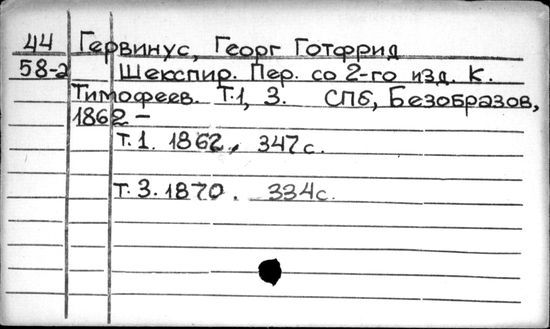 44 Гервинус, Георг Готфрид
58-2 Шекспир. Пер. со 2-го изд. К.
Тимофеев. Т.1, 3. СПб, Безобразов,
1862 -
Т. 1. 1862. 347 с.
Т. 3. 1870. 334 с.